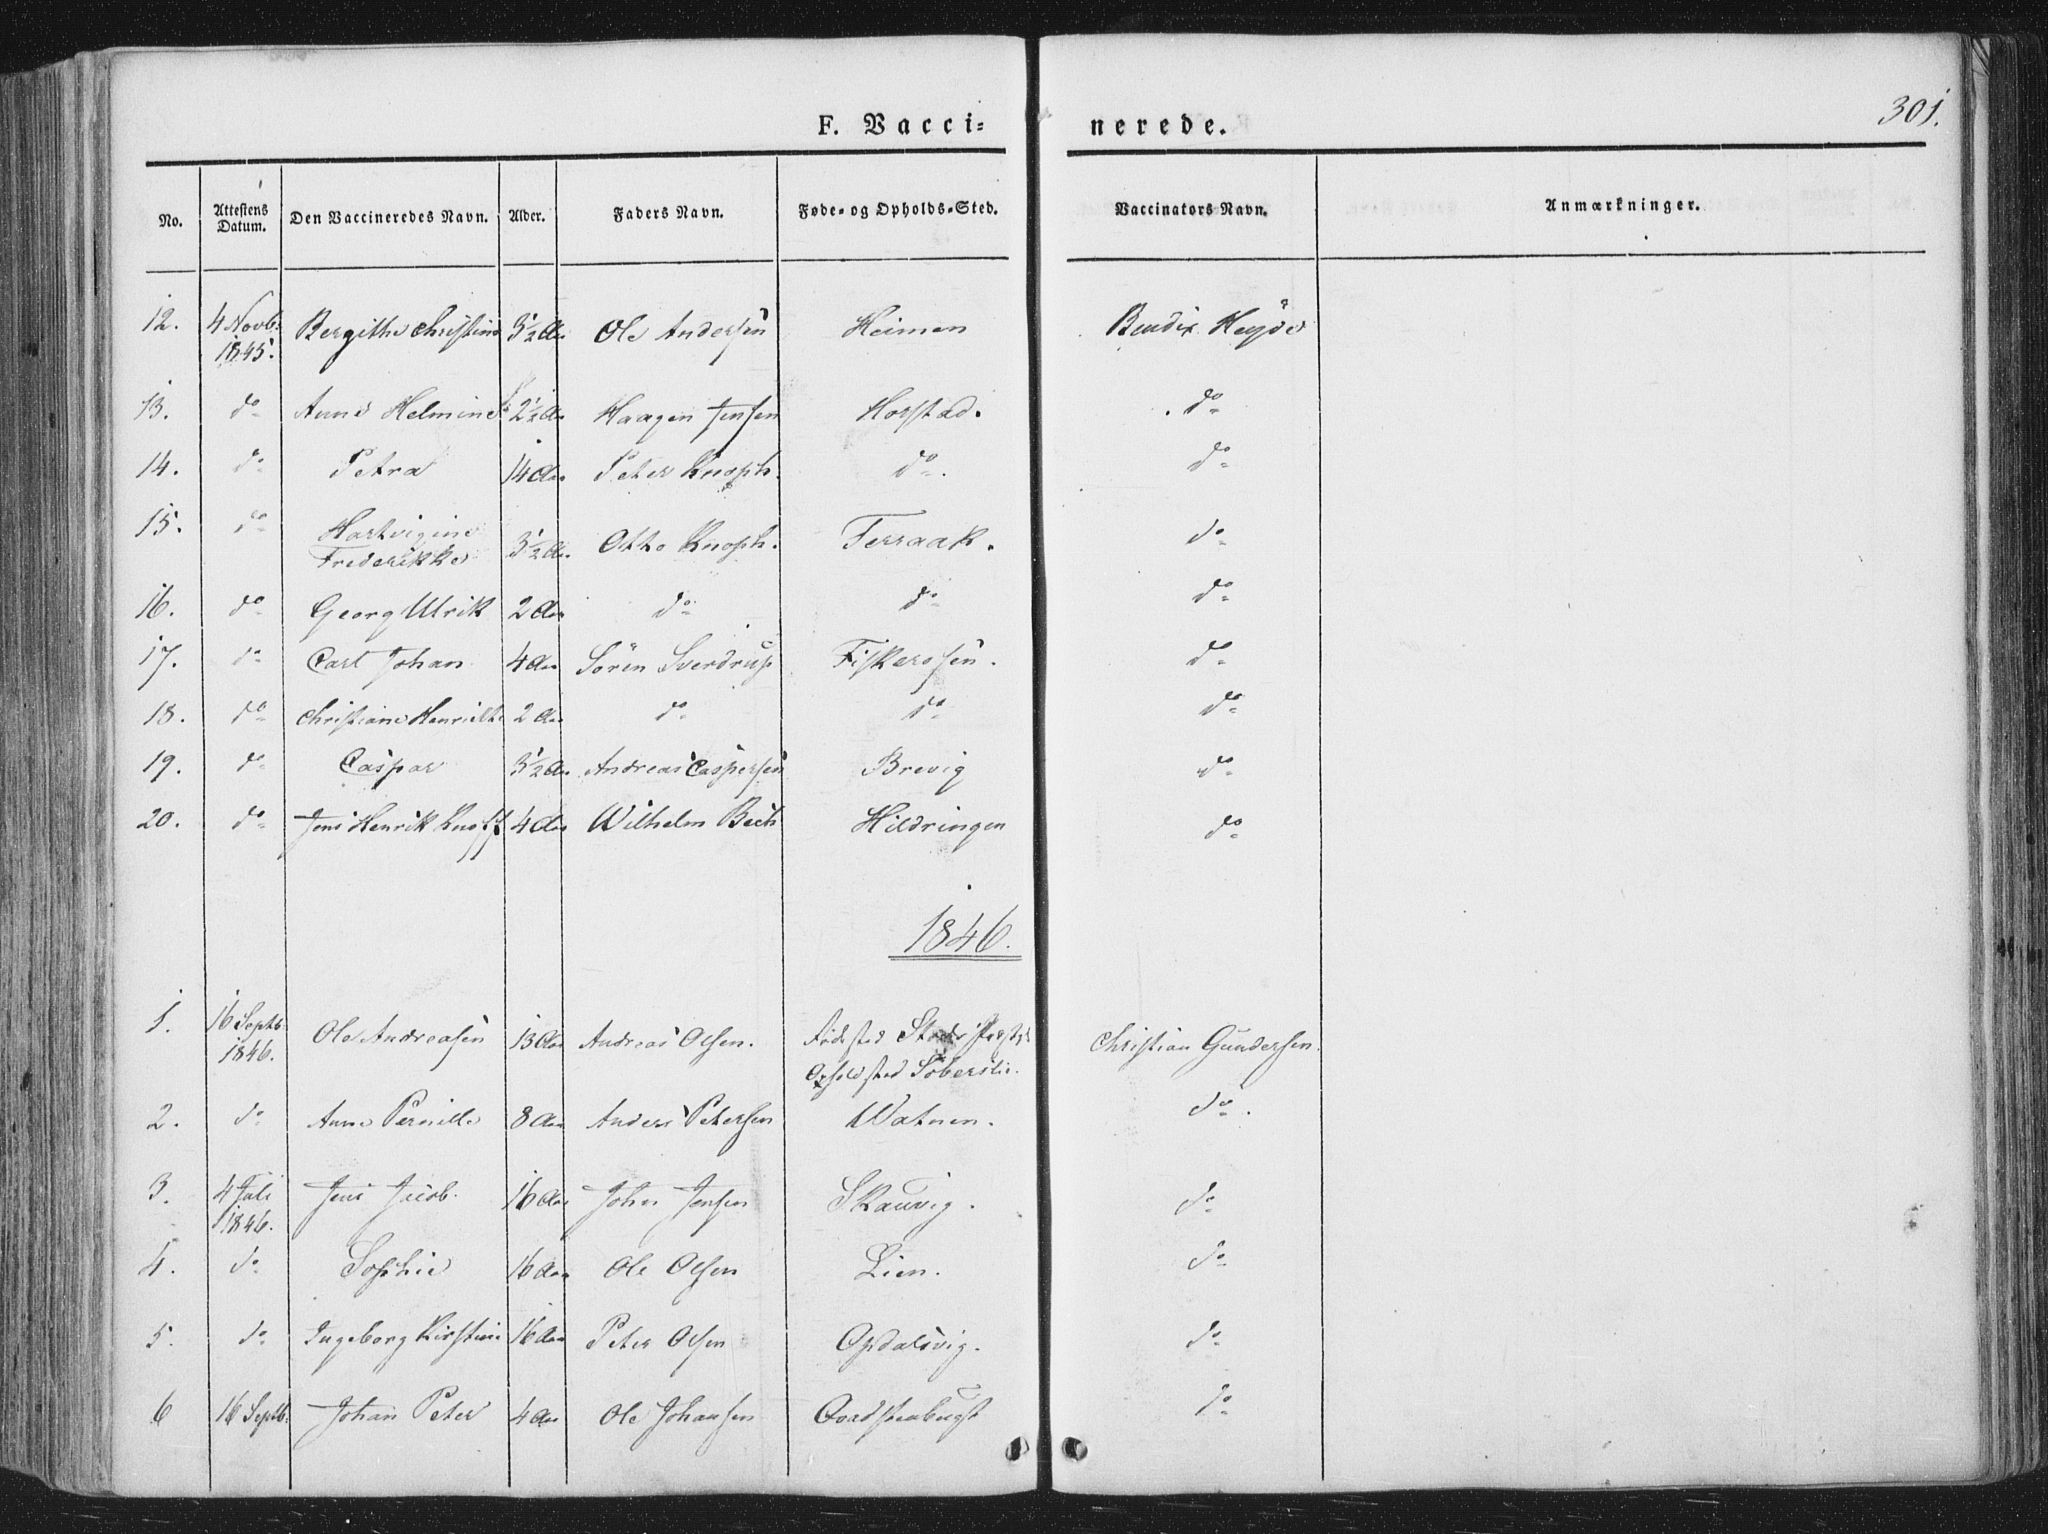 F. Vacci- nerede.
301.
No. Attestens Datum. Den Vaccineredes Navn. Alder. Faders Navn. Føde- og Opholds-Sted. Vaccinators Navn. Anmærkninger.
12. 4 Novb. 1845. Bergithe Christine 3½ Aar Ole Andersen Heimen Bendix Heyde
13. do Anne Helmine 2½ Aar Haagen Jensen Horstad. do
14. do Petra 14 Aar Peter Knoph. do. do
15. do Hartvigine Frederikke 3½ Aar Otto Knoph. Terraak. do
16. do Georg Ulrik 2 Aar do do do
17. do Carl Johan 4 Aar Sören Sverdrup Fiskerosen. do
18. do Christiane Henriette 2 Aar do do do
19. do Caspar 3½ Aar Andreas Caspersen Brevig do
20. do Jens Henrik Knoff 4 Aar Wilhelm Bech Hildringen do
1846.
1. 16 Septb. 1846. Ole Andreasen 13 Aar Andreas Olsen. Födested Opholdsted Christian Gundersen.
2. do Anne Pernille 8 Aar Anders Petersen Watnen. do.
3. 4 Juli 1846. Jens Jacob. 16 Aar John Jensen Skauvig. do
4. do Sophie 16 Aar Ole Olsen Lien. do
5. do Ingeborg Kirstine 16 Aar Peter Olsen Opdalsvig. do
6 16 Septb. Johan Peter 4 Aar Ole Johansen do